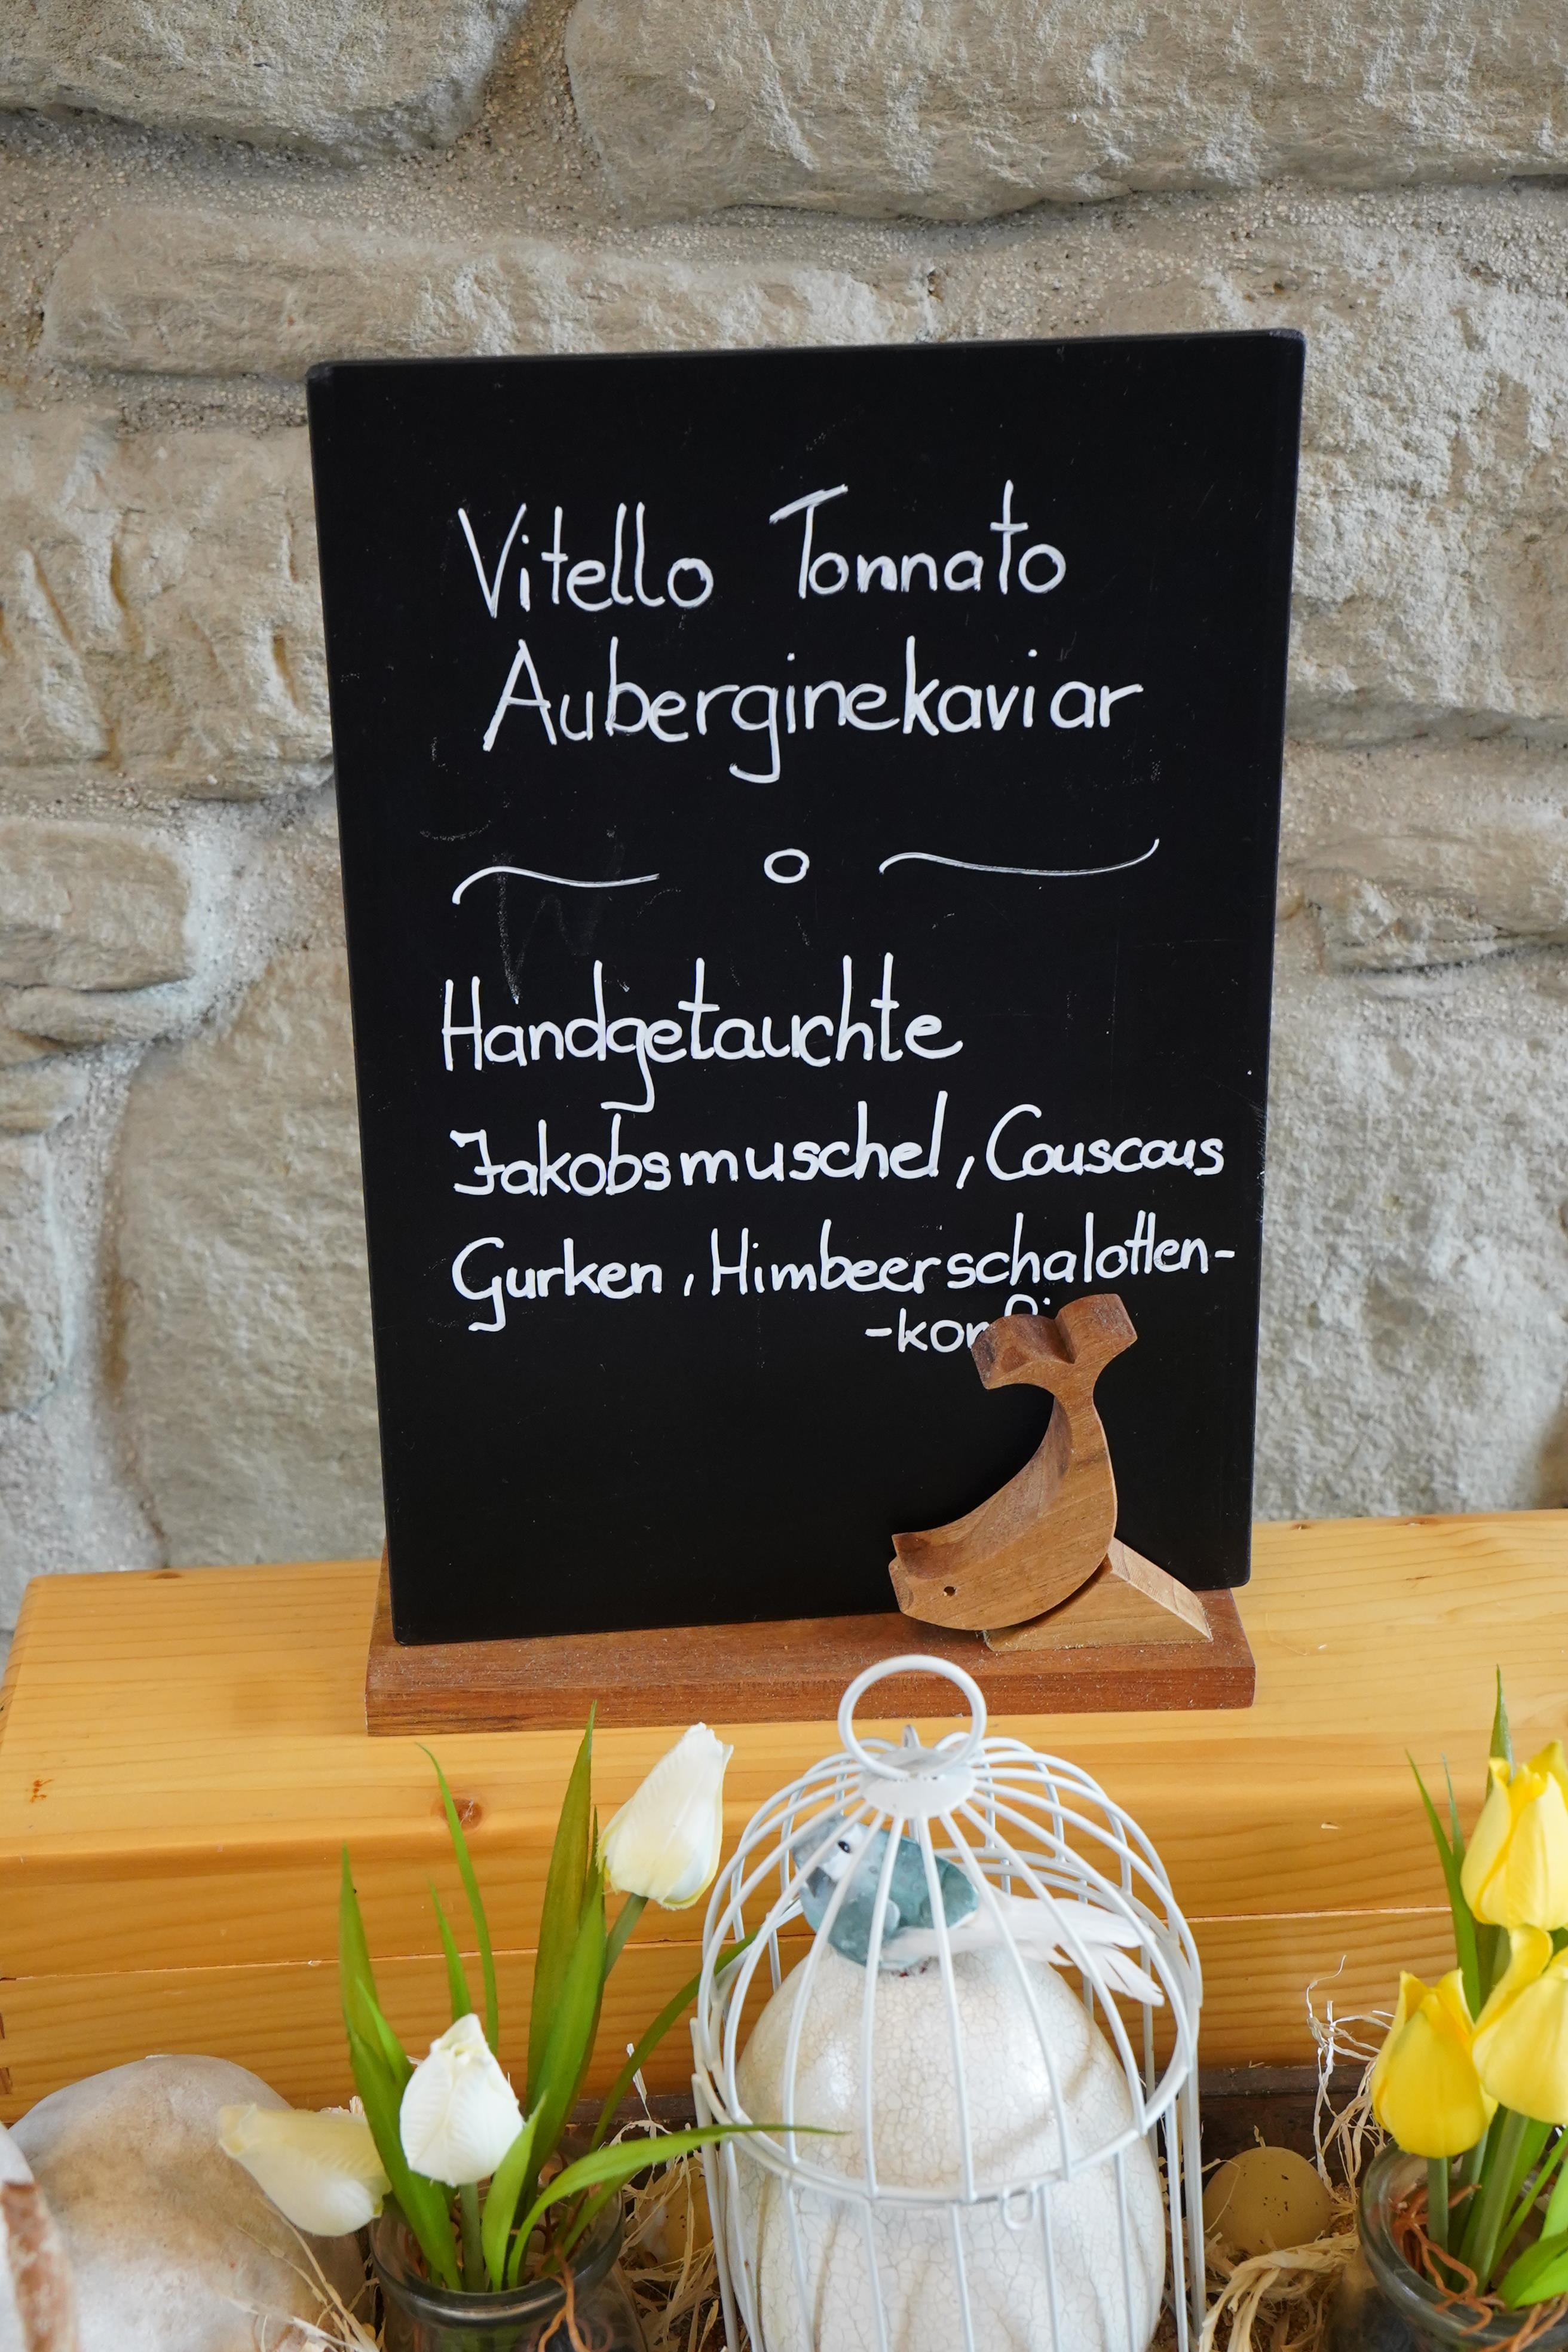 Vitello Tonnato
Auberginekaviar
Handgetauchte
Jakobsmuschel, Couscous
Gurken, Himbeerschalotten-